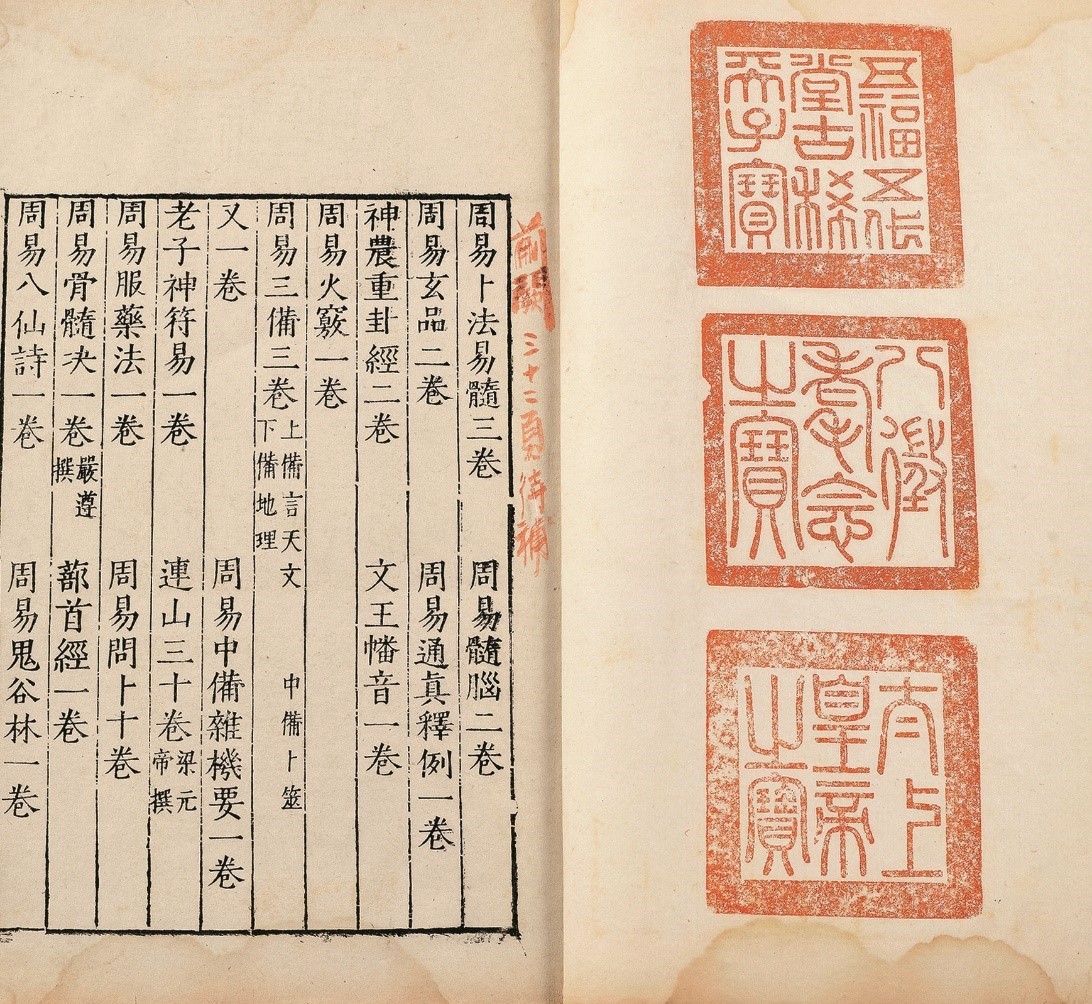 五福五代
堂古稀
天子寶
八徵
耄念
之寶
太上
皇帝
之寶
前闕三十二頁待補
周易卜法易髓三卷 周易髓腦二卷
周易玄品二卷 周易通眞釋例一卷
神農重卦經二卷 文王幡音一卷
周易火竅一卷
周易三備三卷 上備言天文 中備卜筮 下備地理
又一卷 周易中備雜機要一卷
老子神符易一卷 連山三十卷 梁元帝撰
周易服藥法一卷 周易問卜十卷
周易骨髓决一卷 嚴遵撰 蔀首經一卷
周易八仙詩一卷 周易鬼谷林一卷